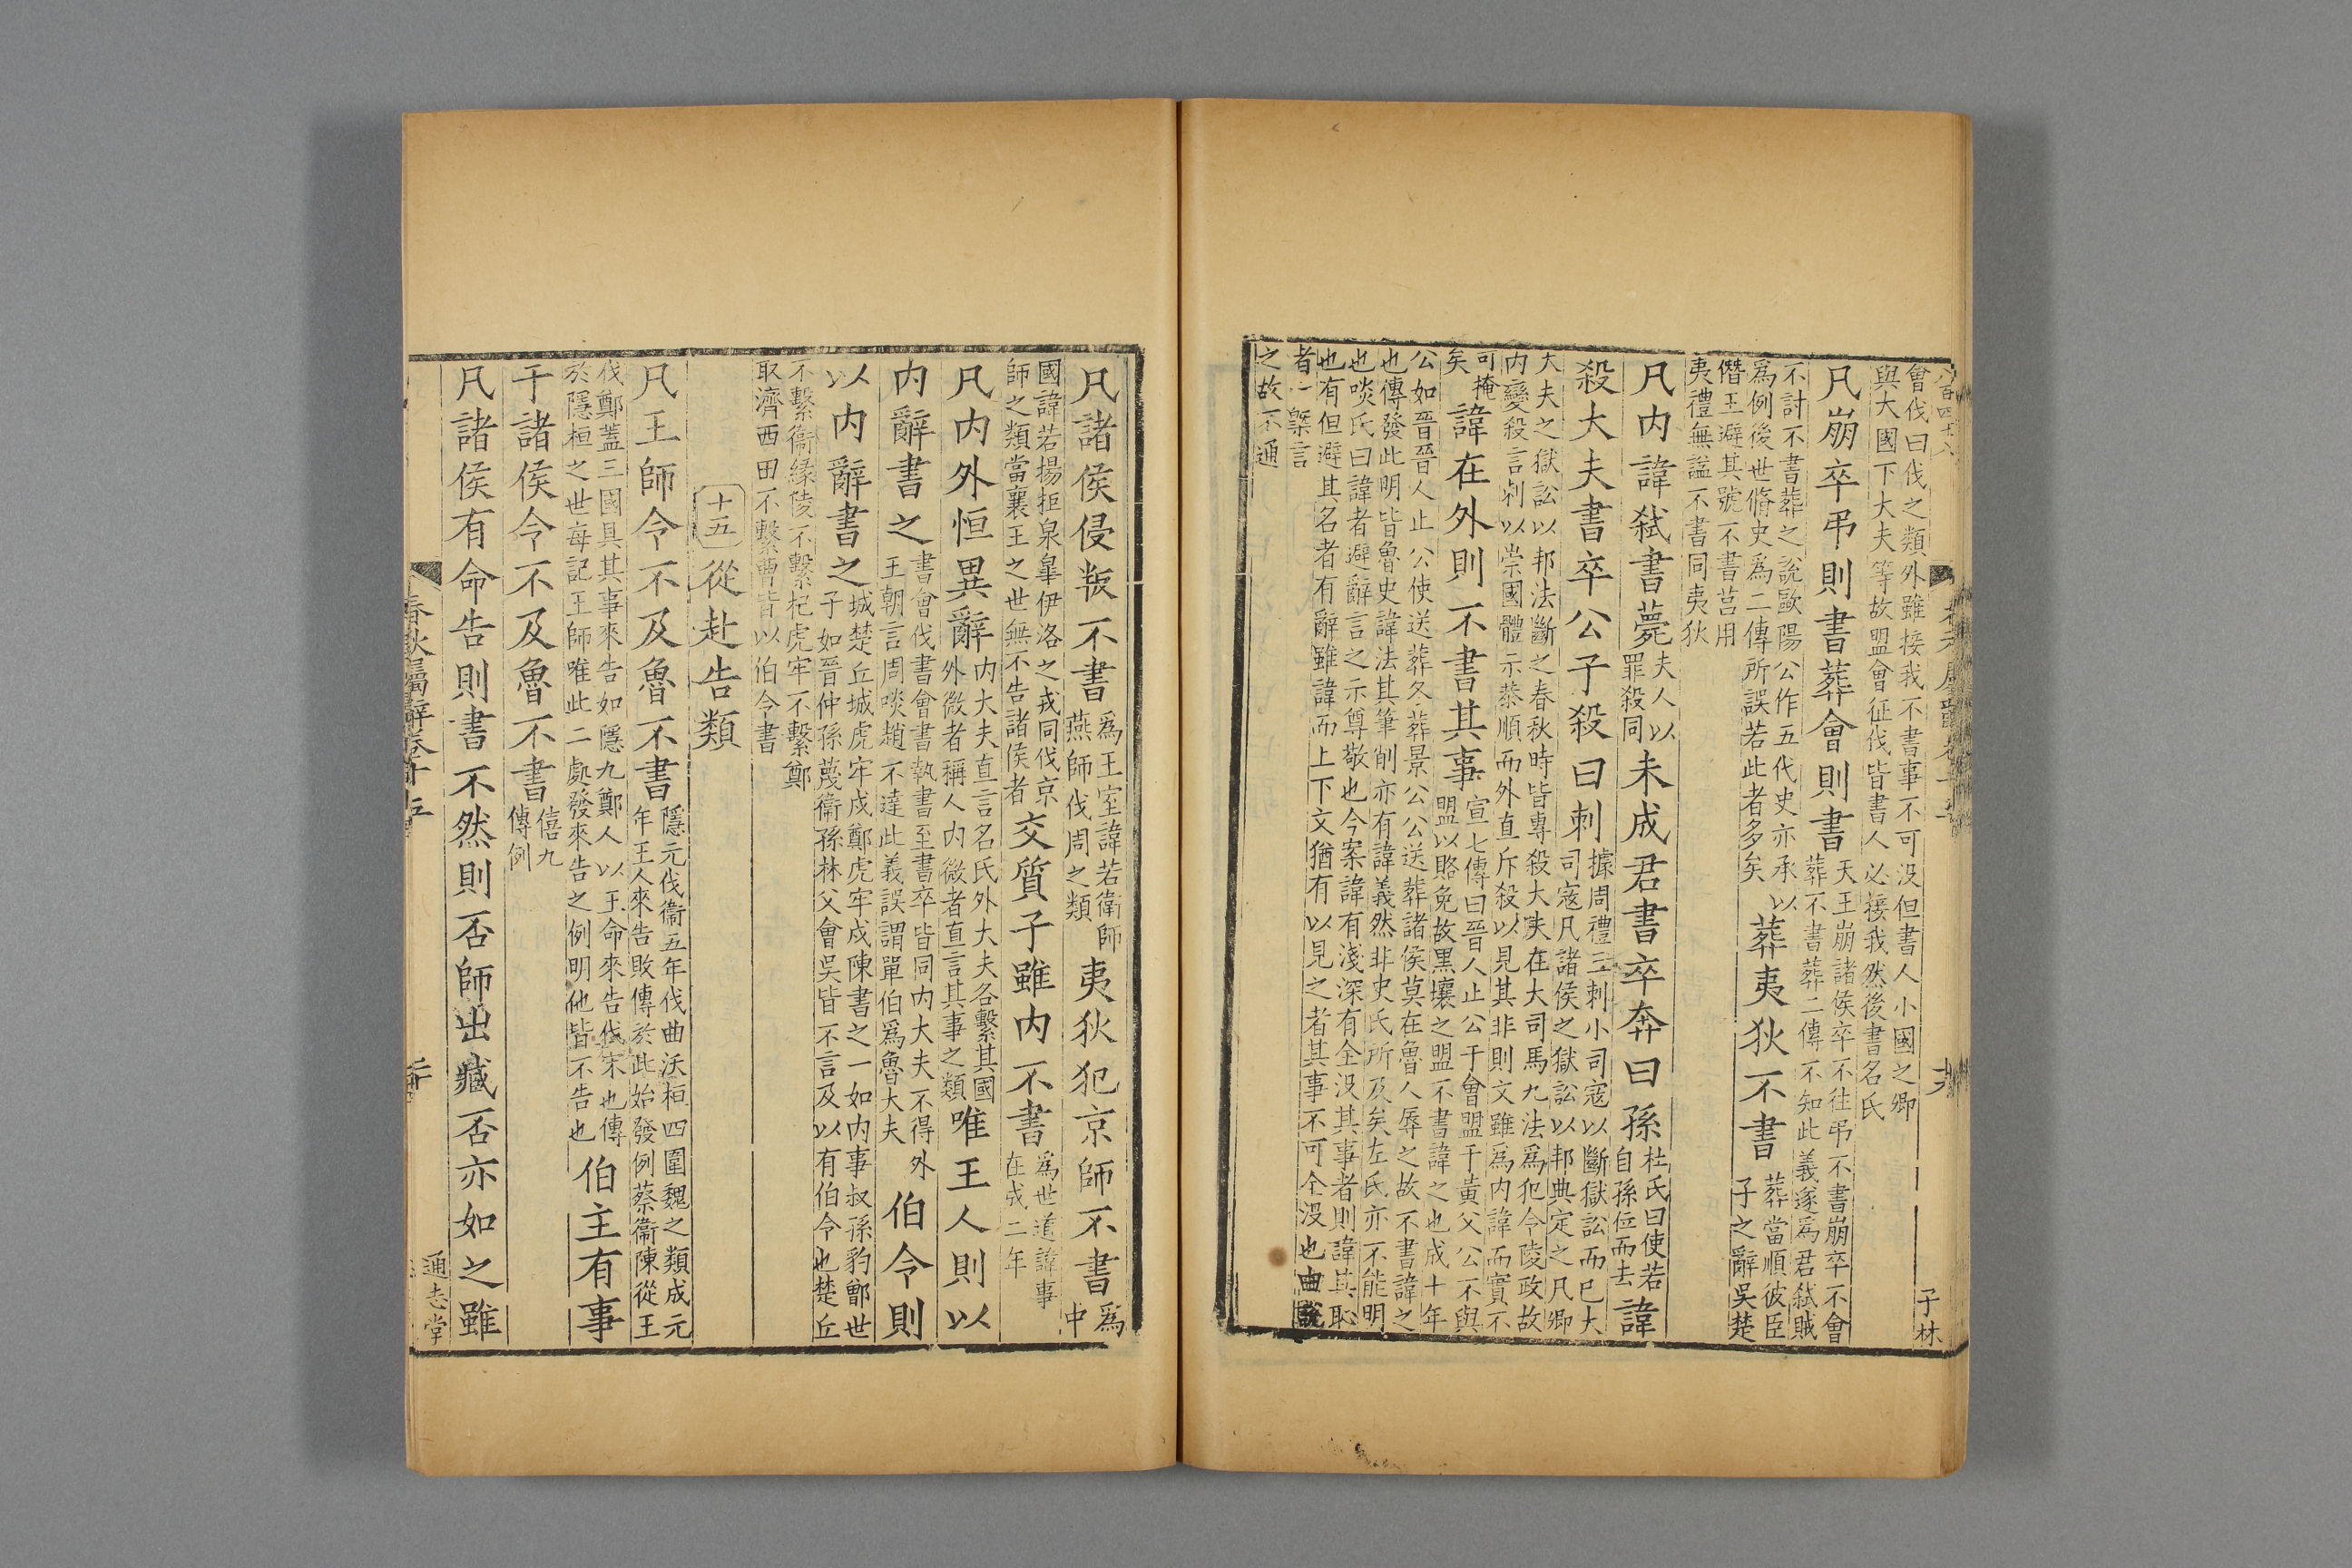 會伐曰伐之類外雖接我不書事不可没但書人小國之卿
與大國下大夫等故盟會征伐皆書人必接我然後書名氏
子林
凡崩卒弔則書葬會則書
天王崩諸侯卒不往弔不書崩卒不會
葬不書葬二傳不知此義遂爲君弑賊
不討不書葬之說歐陽公作五代史亦承以
爲例後世脩史爲二傳所誤若此者多矣
葬夷狄不書
葬當順彼臣
子之辭吳楚
僭王避其號不書莒用
夷禮無謚不書同夷狄
凡内諱弑書薨
夫人以
罪殺同
未成君書卒奔曰孫
杜氏曰使若
自孫位而去
諱
殺大夫書卒公子殺曰刺
據周禮三刺小司寇以斷獄訟而巳大
司寇凡諸侯之獄訟以邦典定之凡卿
大夫之獄訟以邦法斷之春秋時皆專殺大夫在大司馬九法爲犯令陵政故
内變殺言刺以崇國體示恭順而外直斥殺以見其非則文雖爲内諱而實不
可掩
矣
諱在外則不書其事
宣七傳曰晉人止公于會盟于黄父公不與
盟以賂免故黑壤之盟不書諱之也成十年
公如晉晉人止公使送葬冬葬景公公送葬諸侯莫在魯人辱之故不書諱之
也傳發此明皆魯史諱法其筆削亦有諱義然非史氏所及矣左氏亦不能明
也啖氏曰諱者避辭言之示尊敬也今案諱有淺深有全没其事者則諱其恥
也有但避其名者有辭雖諱而上下文猶有以見之者其事不可全沒也曲說
者一槩言
之故不通
凡諸侯侵叛不書
爲王室諱若衛師
燕師伐周之類
夷狄犯京師不書
爲
中
國諱若揚拒泉皐伊洛之戎同伐京
師之類當襄王之世無不告諸侯者
交質子雖内不書
爲世道諱事
在成二年
凡内外恒異辭
内大夫直言名氏外大夫各繫其國
外微者稱人内微者直言其事之類
唯王人則以
内辭書之
書會伐書會書執書至書卒皆同内大夫不得外
王朝言周啖趙不達此義誤謂單伯爲魯大夫
伯令則
以内辭書之
城楚丘城虎牢戍鄭虎牢戍陳書之一如内事叔孫豹鄫世
子如晉仲孫蔑衞孫林父會吳皆不言及以有伯令也楚丘
不繫衞緣陵不繫杞虎牢不繫鄭
取濟西田不繫曹皆以伯令書
十五
從赴告類
凡王師令不及魯不書
隱元伐衞五年伐曲沃桓四圍魏之類成元
年王人來告敗傳於此始發例蔡衞陳從王
伐鄭蓋三國具其事來告如隱九鄭人以王命來告伐宋也傳
於隱桓之世每記王師唯此二處發來告之例明他皆不告也
伯主有事
于諸侯令不及魯不書
僖九
傳例
凡諸侯有命告則書不然則否師出臧否亦如之雖
春秋屬辭卷十五
通志堂